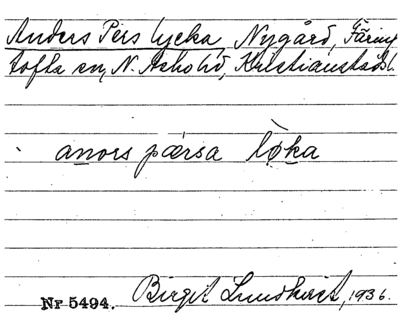 Anders Pers lycka, Nygård, Färing
tofta sn, N. Åsbo hd, Kristianstads l.
anərs pærsa løka
Nr 5494. Birgit Lundkvist, 1936.